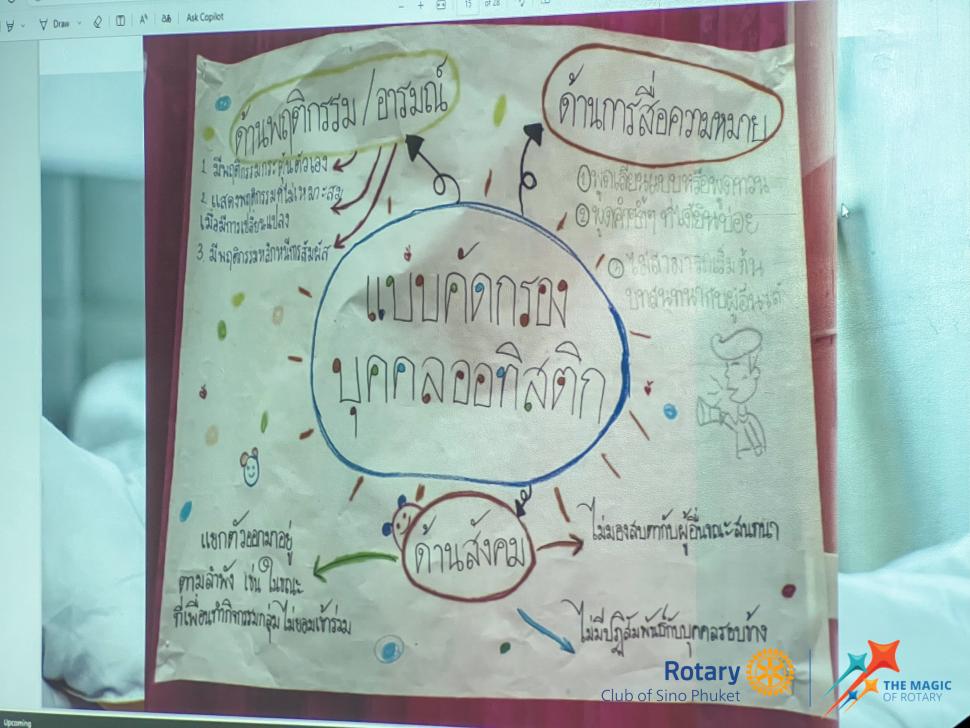 Draw
Ask Copilot
15 of 28
ด้านพฤติกรรม / อารมณ์
1. มีพฤติกรรมกระตุ้นตัวเอง
2. แสดงพฤติกรรมที่ไม่เหมาะสม
เมื่อมีการเปลี่ยนแปลง
3. มีพฤติกรรมหลีกหนีการสัมผัส
ด้านการสื่อความหมาย
① พูดเลียนแบบหรือพูดทวน
② พูดคำซ้ำๆ ที่ได้ยินบ่อย
③ ไม่สามารถเริ่มต้น
บทสนทนากับผู้อื่นได้
แบบคัดกรอง
บุคคลออทิสติก
ด้านสังคม
แยกตัวออกมาอยู่
ตามลำพัง เช่น ในขณะ
ที่เพื่อนทำกิจกรรมกลุ่ม ไม่ยอมเข้าร่วม
ไม่มองสบตากับผู้อื่นขณะสนทนา
ไม่มีปฏิสัมพันธ์กับบุคคลรอบข้าง
Rotary
Club of Sino Phuket
THE MAGIC
OF ROTARY
Upcoming